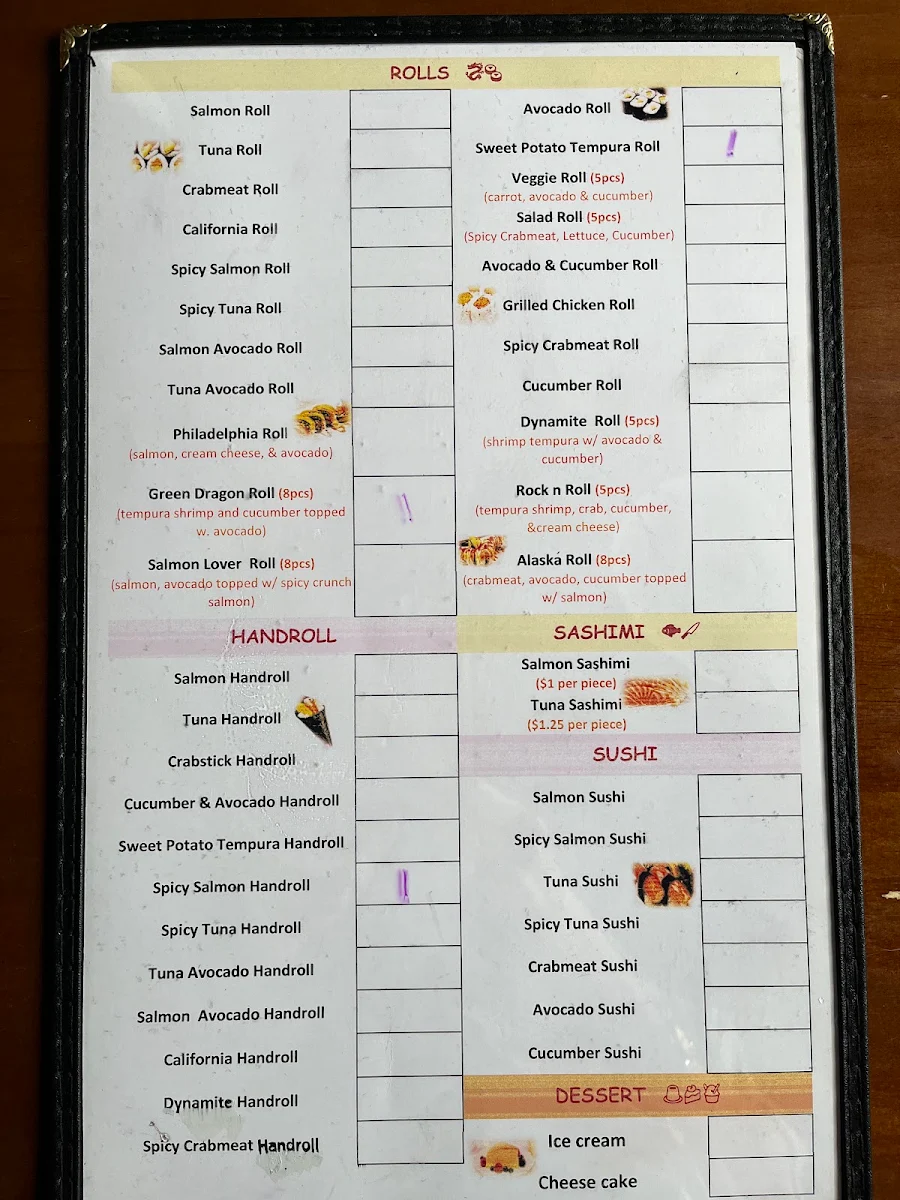 ROLLS
Salmon Roll
Tuna Roll
Crabmeat Roll
California Roll
Spicy Salmon Roll
Spicy Tuna Roll
Salmon Avocado Roll
Tuna Avocado Roll
Philadelphia Roll
(salmon, cream cheese, & avocado)
Green Dragon Roll (8pcs)
(tempura shrimp and cucumber topped
w. avocado)
Salmon Lover Roll (8pcs)
(salmon, avocado topped w/ spicy crunch
salmon)
Avocado Roll
Sweet Potato Tempura Roll
Veggie Roll (5pcs)
(carrot, avocado & cucumber)
Salad Roll (5pcs)
(Spicy Crabmeat, Lettuce, Cucumber)
Avocado & Cucumber Roll
Grilled Chicken Roll
Spicy Crabmeat Roll
Cucumber Roll
Dynamite Roll (5pcs)
(shrimp tempura w/ avocado &
cucumber)
Rock n Roll (5pcs)
(tempura shrimp, crab, cucumber,
&cream cheese)
Alaska Roll (8pcs)
(crabmeat, avocado, cucumber topped
w/ salmon)
HANDROLL
Salmon Handroll
Tuna Handroll
Crabstick Handroll
Cucumber & Avocado Handroll
Sweet Potato Tempura Handroll
Spicy Salmon Handroll
Spicy Tuna Handroll
Tuna Avocado Handroll
Salmon Avocado Handroll
California Handroll
Dynamite Handroll
Spicy Crabmeat Handroll
SASHIMI
Salmon Sashimi
($1 per piece)
Tuna Sashimi
($1.25 per piece)
SUSHI
Salmon Sushi
Spicy Salmon Sushi
Tuna Sushi
Spicy Tuna Sushi
Crabmeat Sushi
Avocado Sushi
Cucumber Sushi
DESSERT
Ice cream
Cheese cake